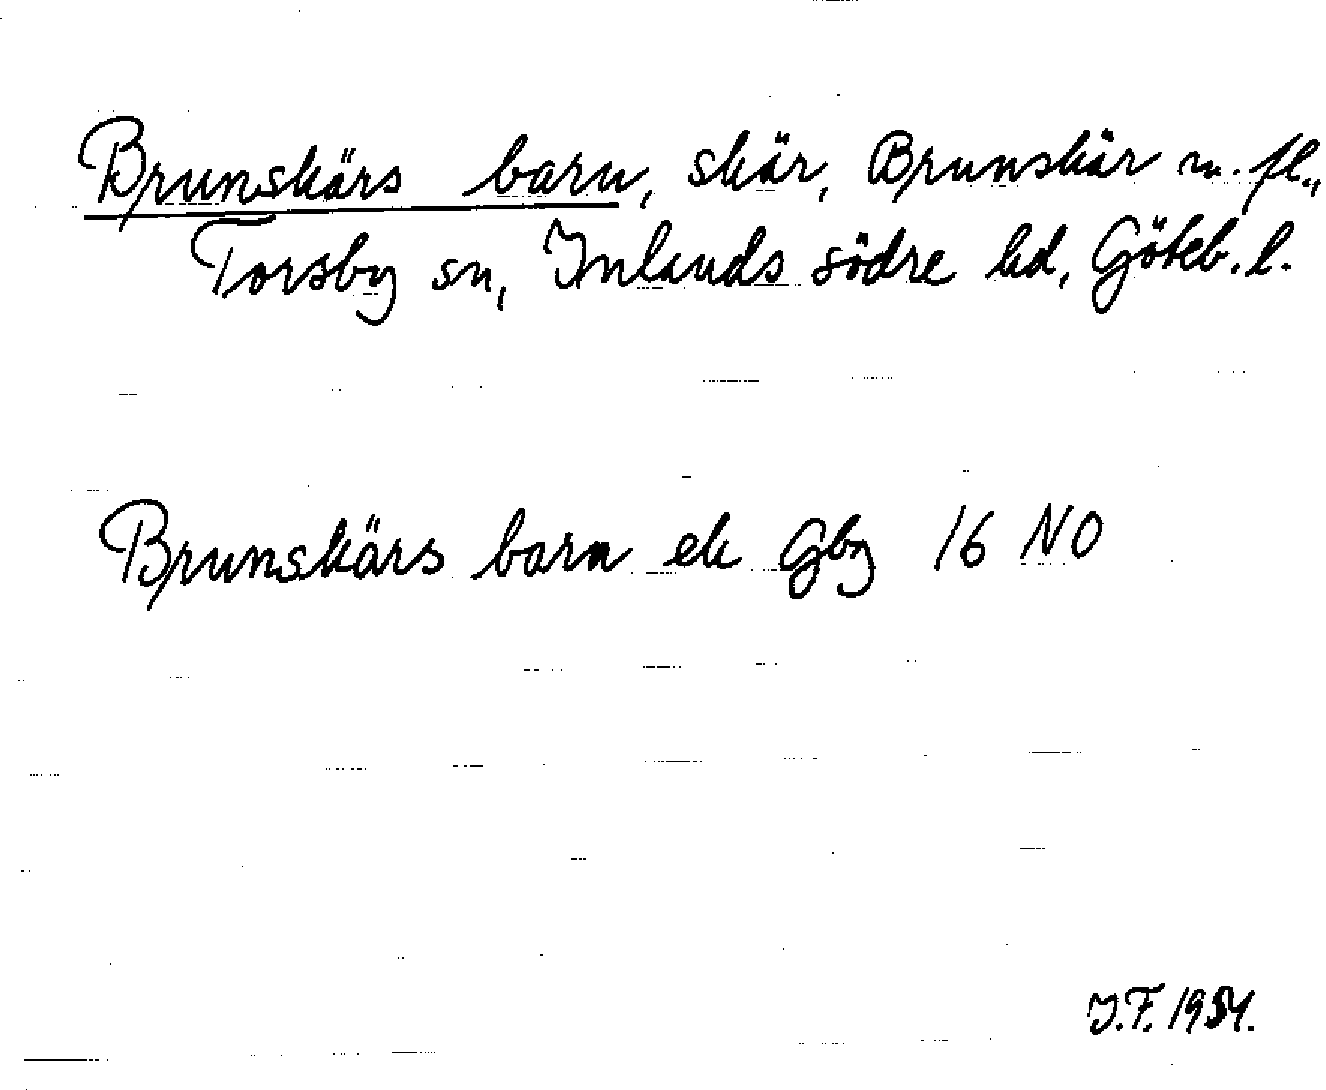 Brunskärs barn, skär, Brunskär m. fl.,
Torsby sn, Inlands södre hd, Göteb. l.
Brunskärs barn ek Gbg 16 NO
J.F. 1954.